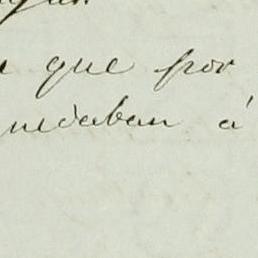 que por
uedaban á